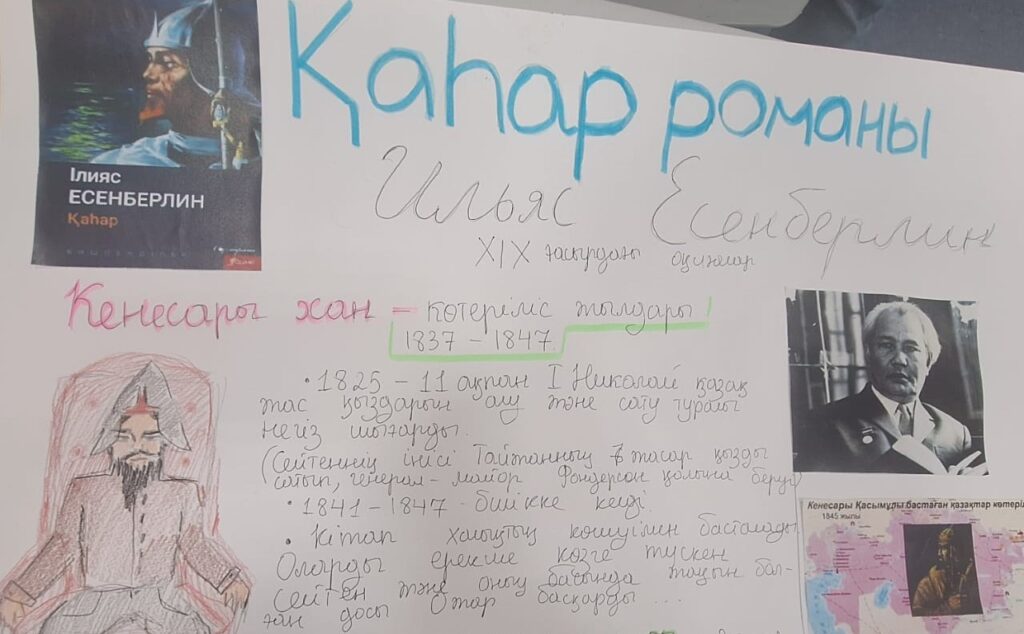 Қаһар романы
Ілияс
ЕСЕНБЕРЛИН
Қаһар
Ильяс Есенберлин
XIX ғасырдағы оқиғалар
Кенесары хан – көтеріліс жылдары
1837 – 1847
• 1825 – 11 ақпан I Николай қазақ
жас қыздарын алу және сату туралы
негіз шығарды.
(Сейтеннің інісі Тайжанның 7 жасар қызды
сатып, генерал-майор Фондерсон қолына беруі)
• 1841 – 1847 – билікке келді
• Кітап халықтың көшуімен басталады
Оларды ерекше көзге түскен
Сейтен және оның басында тағын бал-
ған досы Отар басқарды ...
Кенесары Қасымұлы бастаған қазақтар көтеріл
1845 жылы